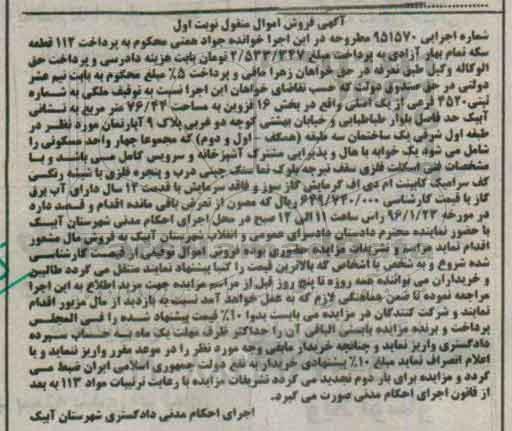 آگهی فروش اموال منقول نوبت اول
شماره اجرایی ۹۵۱۵۷۰ مطروحه در این اجرا خوانده جواد همتی محکوم به پرداخت ۱۱۴ قطعه
سکه تمام بهار آزادی به پرداخت مبلغ ۲/۵۳۳/۳۴۷ تومان بابت هزینه دادرسی و پرداخت حق
الوکاله وکیل طبق تعرفه در حق خواهان زهرا مافی و پرداخت ۵٪ مبلغ محکوم به بابت نیم عشر
دولتی در حق صندوق دولت که حسب تقاضای خواهان این اجرا نسبت به توقیف ملکی به شماره
ثبتی ۴۵۲۰ فرعی از یک اصلی واقع در بخش ۱۶ قزوین به مساحت ۷۶/۴۴ متر مربع به نشانی
آبیک حد فاصل بلوار طباطبایی و خیابان بهشتی کوچه دو غربی پلاک ۹ آپارتمان مورد نظر در
طبقه اول شرقی یک ساختمان سه طبقه (همکف ـ اول و دوم) که مجموعا چهار واحد مسکونی را
شامل می شود یک خوابه با هال و پذیرایی مشترک آشپزخانه و سرویس کامل می باشد و با
مشخصات فنی اسکلت فلزی سقف تیرچه بلوک نما سنگ چینی درب و پنجره فلزی با شیشه رنگی
کف سرامیک کابینت ام دی اف گرمایش گاز سوز و فاقد سرمایش با قدمت ۱۲ سال دارای آب برق
گاز با قیمت کارشناسی ۶۴۹/۷۴۰/۰۰۰ ریال که مصون از تعرض باقی مانده اقدام و قصد دارد
در مورخه ۹۶/۱/۲۳ راس ساعت ۱۱ الی ۱۲ صبح در محل اجرای احکام مدنی شهرستان آبیک
با حضور نماینده محترم دادستان دادسرای عمومی و انقلاب شهرستان آبیک به فروش مال مذکور
اقدام نماید مراسم و تشریفات مزایده حضوری بوده فروش اموال توقیفی از قیمت کارشناسی
شده شروع و به شخص یا اشخاص که بالاترین قیمت را کتبا پیشنهاد نمایند منتقل می گردد طالبین
و خریداران می توانند همه روزه تا پنج روز قبل از مراسم مزایده جهت مزید اطلاع به این اجرا
مراجعه نموده تا ضمن هماهنگی لازم که به عمل خواهد آمد نسبت به بازدید از مال مزبور اقدام
نمایند و شرکت کنندگان در مزایده می بایست بدوا ۱۰٪ قیمت پیشنهاد شده را فی المجلس
پرداخت و برنده مزایده بایستی الباقی آن را حداکثر ظرف مهلت یک ماه به حساب سپرده
دادگستری واریز نماید و چنانچه خریدار مابقی وجه مورد نظر را در موعد مقرر واریز ننماید و یا
اعلام انصراف نماید مبلغ ۱۰٪ پیشنهادی خریدار به نفع دولت جمهوری اسلامی ایران ضبط می
گردد و مزایده برای بار دوم تجدید می گردد تشریفات مزایده با رعایت ترتیبات مواد ۱۱۳ به بعد
از قانون اجرای احکام مدنی صورت می گیرد.
اجرای احکام مدنی دادگستری شهرستان آبیک